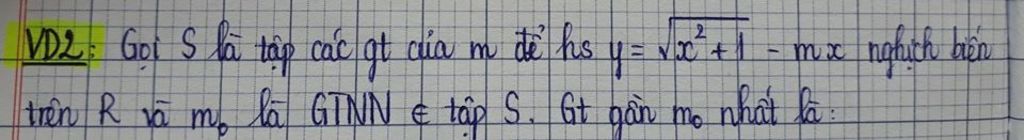 VD2: Gọi S là tập các gt của m để hs y = √(x² + 1) - mx nghịch biến
trên R và m₀ là GTNN ∈ tập S. Gt gần m₀ nhất là: